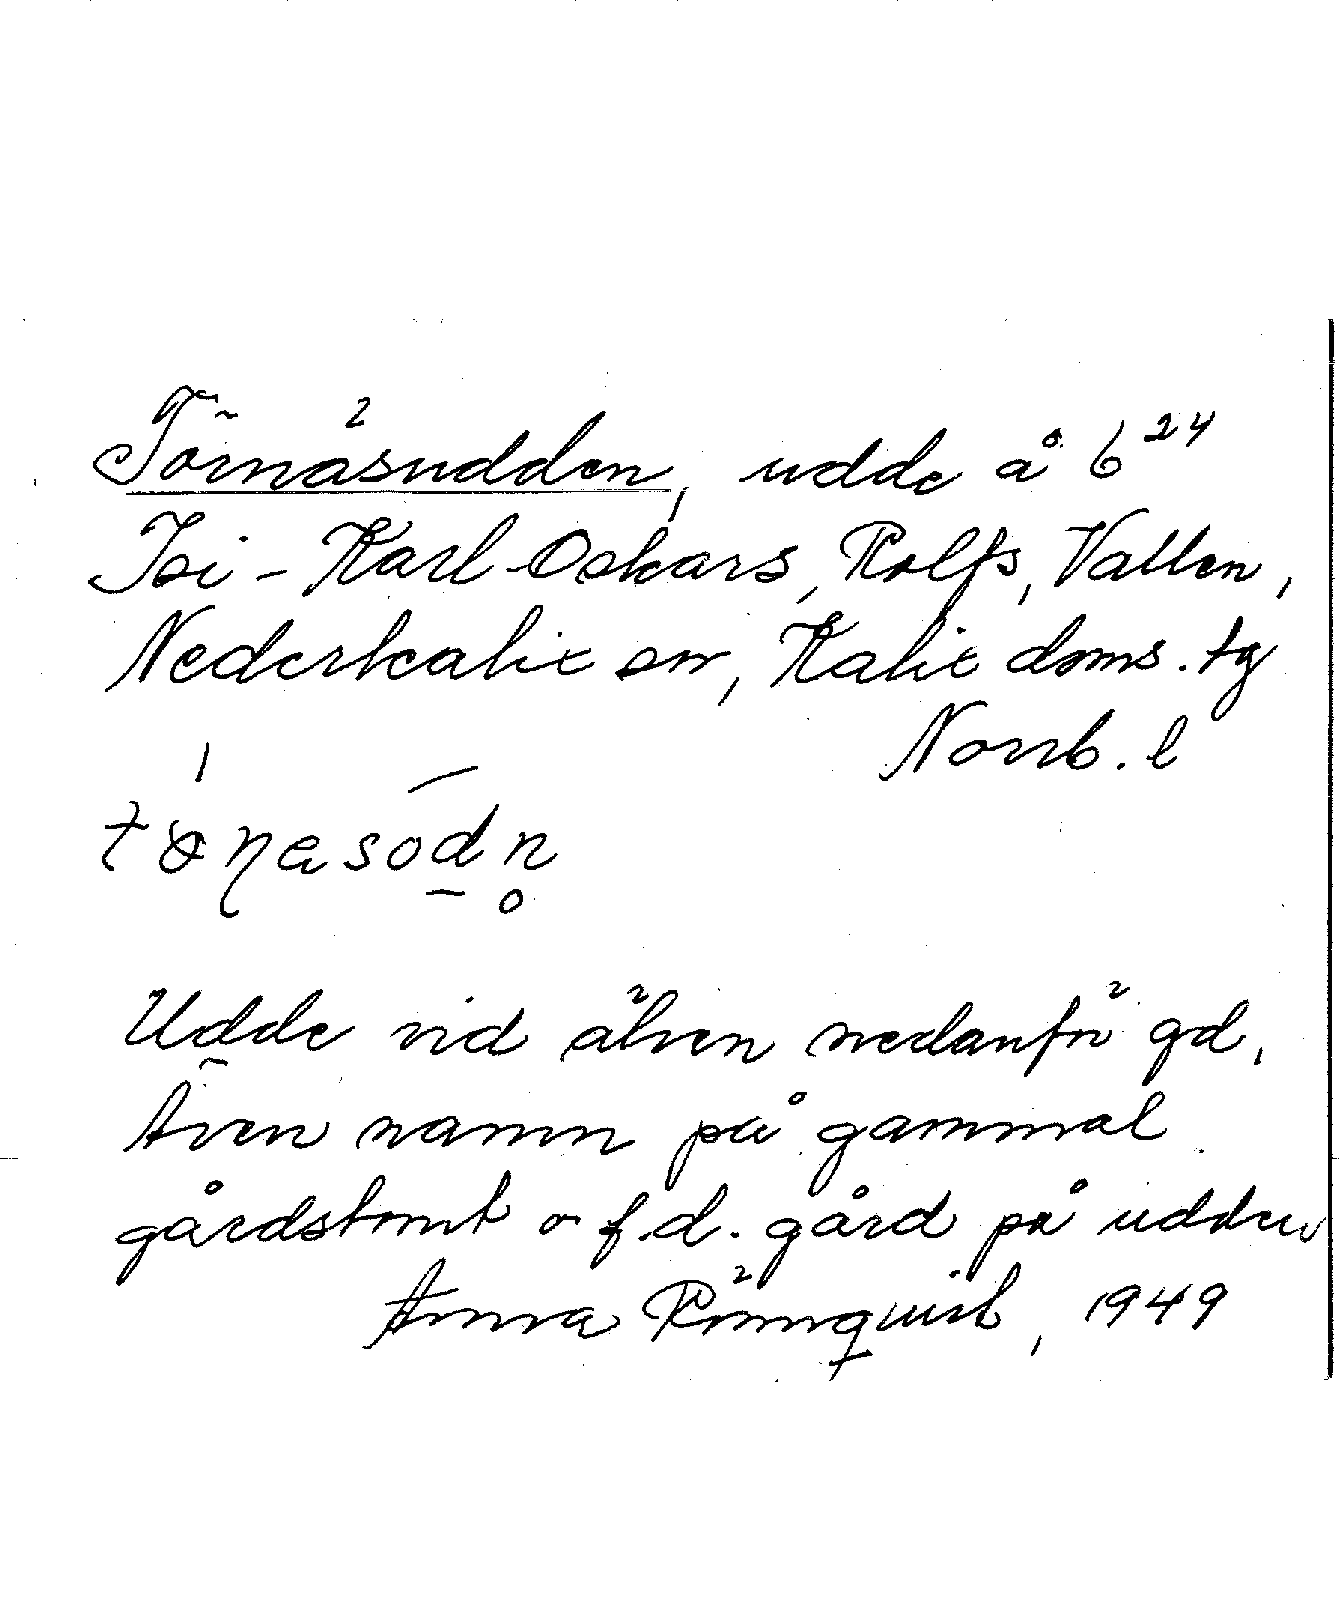 Törnäsudden, udde å 6²⁴
Isi-Karl-Oskars, Rolfs, Vallen,
Nederkalix sn, Kalix doms. tg
Norrb. l
tø̀ɳasòd̲n̥
Udde vid älven nedanför gd,
Även namn på gammal
gårdstomt o f.d. gård på udden
Anna Rönnquist, 1949